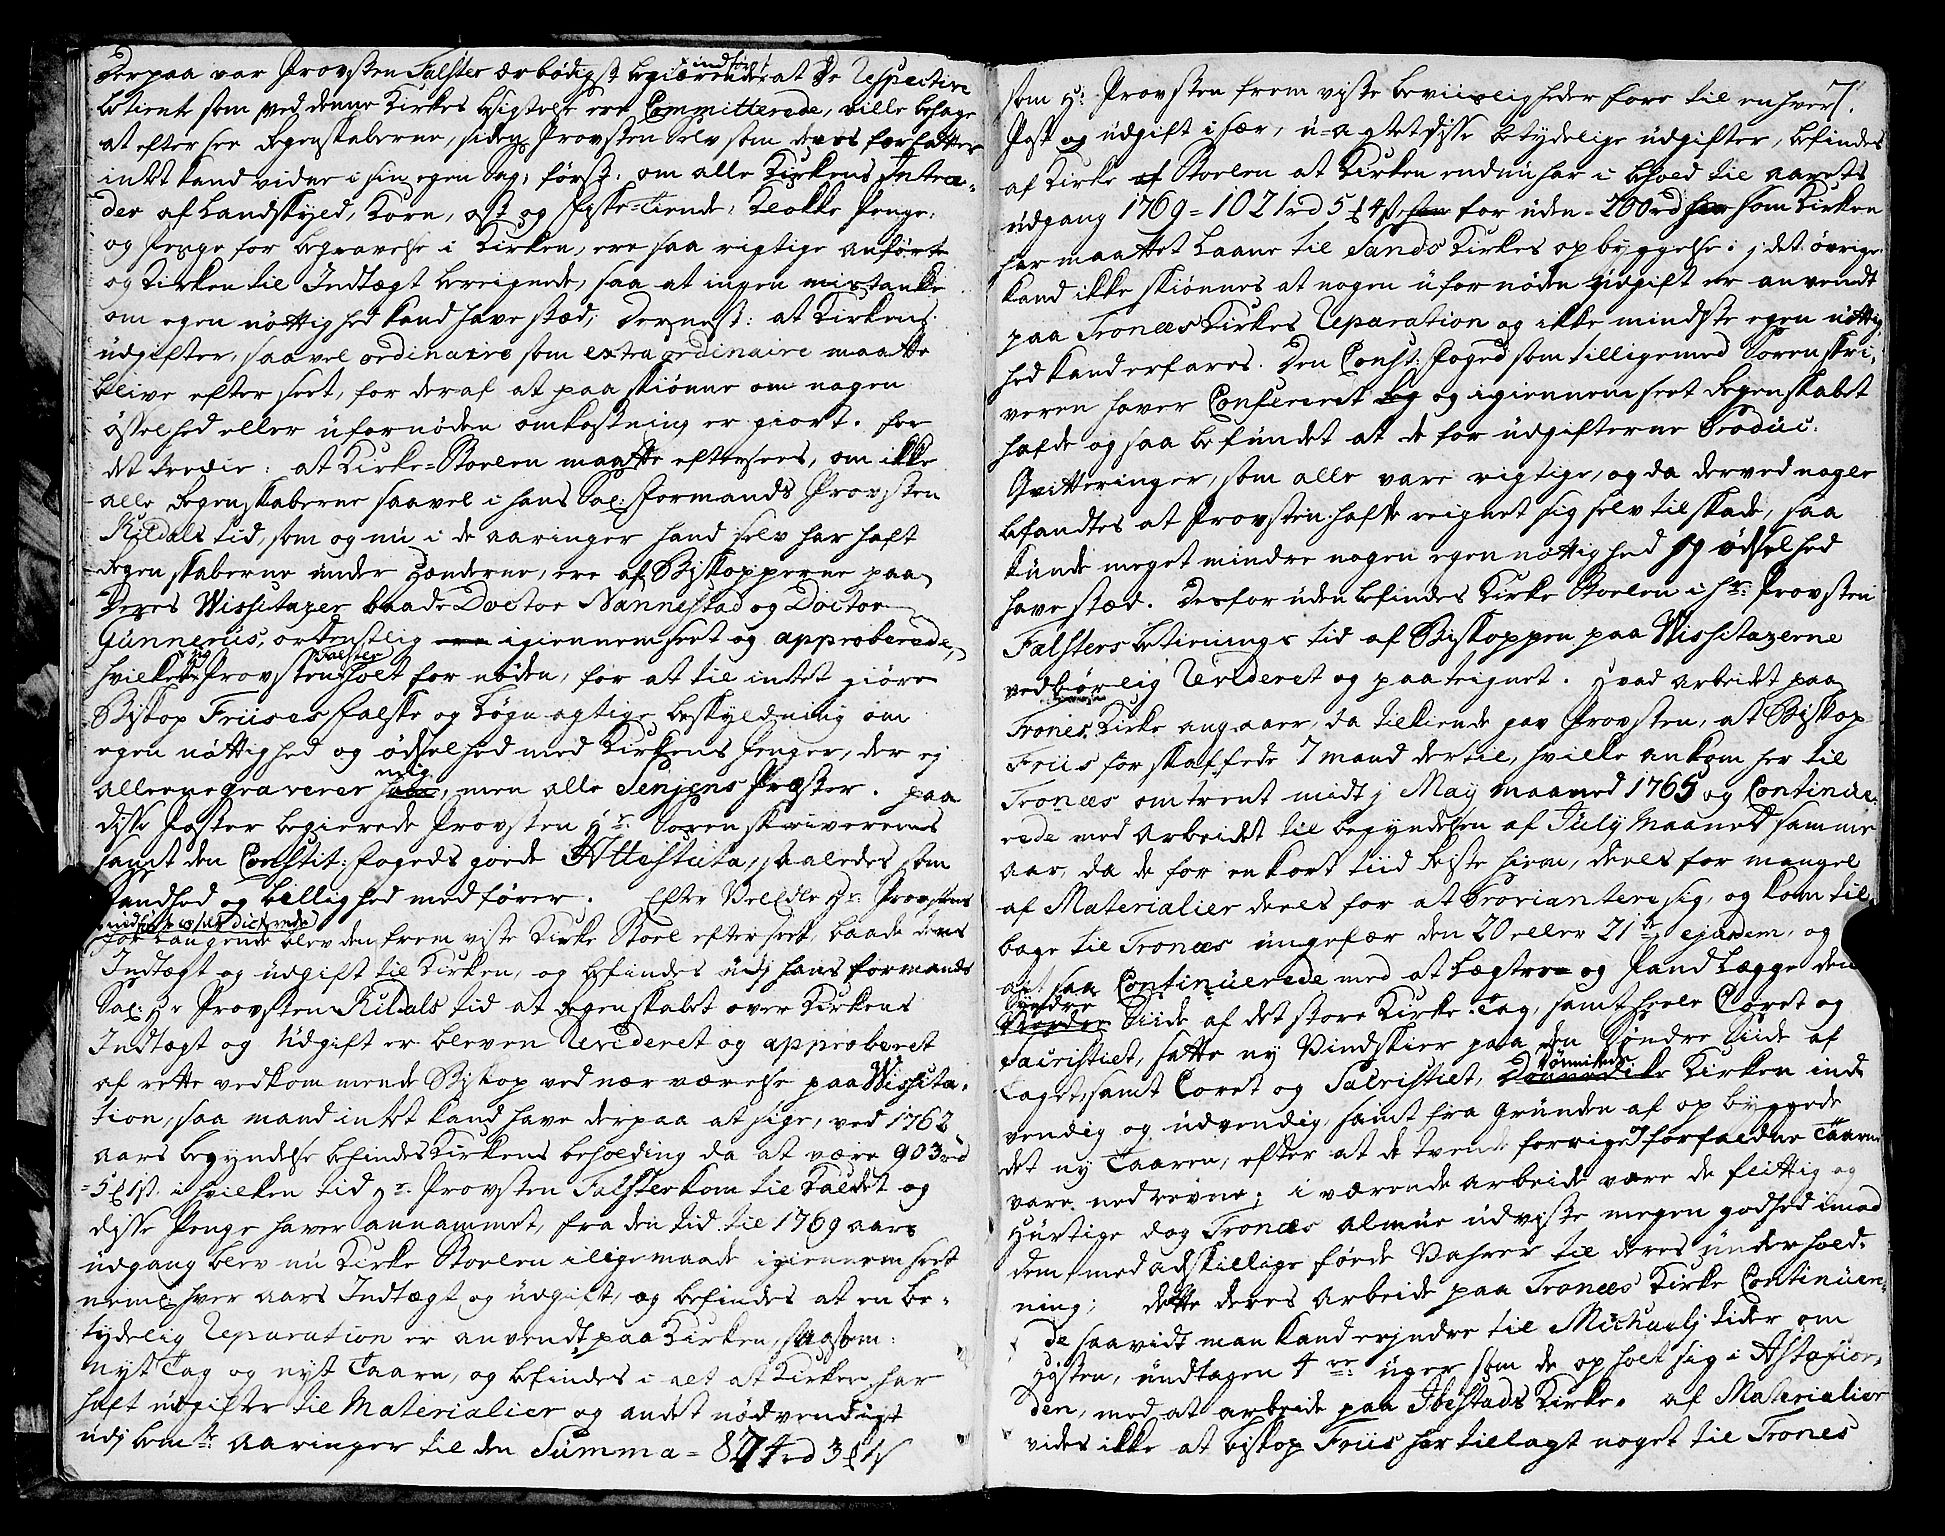 Derpaa var Provsten Falster ærbödigst begiærende at de Respective
betiente som ved denne Kirkes besigtelse ere Committerede, ville behage
at efter see Regenskaberne, siden Provsten Selv som deres forfatter
intet kand vidne i sin egen Sag; först: om alle Kirkens Intra-
der af Landskyld, Korn, ost og Fiske-Tiende, Klokke Penge,
og Penge for begravelse i Kirken, ere saa rigtige anförte
og Kirken til Indtægt bereignede, saa at ingen mistanke
om egen nöttighed kand have stæd; Dernest: at Kirkens
udgifter, saavel ordinaire som extraordinaire maatte
blive efter seet, for deraf at paaskiönne om nogen
össelhed eller ufornöden omkostning er giort. for
det tredie: at Kirke-Stoelen maatte eftersees, om ikke
alle Regenskaberne saavel i hans Sal: Formands Provsten
Kildals tid, som og nu i de aaringer hand selv har haft
Regenskaberne under Hænderne, ere af Biskopperne paa
Deres Wissitazer baade Doctor Nannestad og Doctor
Gunnerus, ordentlig igiennemseet og approberede,
hvilket Provsten Falster holt for nöden, for at til intet giöre
Biskop Friises falske og Lögnagtige beskyldning om
egen nöttighed og ödselhed med Kirkens Penger, der ej
alleene graverer mig, men alle Senjens Præster. paa
disse Poster begierede Provsten Hr. Sorenskriverens
samt den Constit: Fogeds goede Attestata, saaledes som
Sandhed og billighed medförer. Efter Velædle Hr. Provstens
forlangende blev den frem viste Kirke Stoel efterseet baade dens
Indtægt og udgift til Kirken, og befindes udj hans formands
Sal: Hr Provsten Kildals tid at Regenskabet over Kirkens
Indtægt og Udgift er bleven Revideret og approberet
af rette vedkommende Biskop ved nærværelse paa Wissita-
tion, saa mand intet kand have derpaa at sige, ved 1762
aars begyndelse befindes Kirkens beholding da at være 903 rd
i hvilken tid Hr. Provsten Falster kom til Kaldet og
disse Penge haver annammet, fra den tid til 1769 aars
udgang blev nu Kirke Stoelen i lige maade igiennemseet
neml: hver aars Indtægt og udgift, og befindes at en be-
tydelig Reparation er anvendt paa Kirken, saasom:
nyt Tag og nyt Taarn, og befindes i alt at Kirken har
haft udgifter til Materialier og andet nödvendigt
udj bemte aaringer til den Summa = 874 rd
7.
som Hr Provsten frem viste beviisligheder fore til enhver
Post og udgift i sær, u-agtet disse betydelige udgifter, befindes
af Kirke Stoelen at Kirken endnu har i behold til aarets
udgang 1769 = 1021 rd for uden = 200 rd som Kirken
har maattet laane til Sands Kirkes opbyggelse; j det övrige
kand ikke skiönnes at nogen ufornöden udgift er anvendt
paa Tronæs Kirkes Reparation og ikke mindste egen nöttig-
hed kand erfares. Den Const: Foged som tilligemed Sorenskri-
veren haver Confereret og igiennemseet Regenskabet
hafde og saa befundet at de for udgifterne Produc:
Qvitteringer, som alle vare rigtige, og da derved nogle
befandtes at Provsten hafde reignet sig selv til skade, saa
kunde meget mindre nogen egen nöttighed og ödselhed
have stæd. Desforuden befindes Kirke Stoelen i Hr: Provsten
Falsters betienings tid af Biskoppen paa Wissitazerne
vedbörlig Revideret og paateignet. Hvad arbeidet paa
Trones Kirke angaaer, da tilkiende gav Provsten, at Biskop
Friis forskaffede 7 mand dertil, hvilke ankom her til
Tronæs omtrent midt j Maij maaned 1765 og Continue-
rede med arbeidet til begyndelsen af Julij Maaned samme
aar, da de for en kort tiid Reiste hiem, deels for mangel
af Materialier deels for at Proviantere sig, og kom til
bage til Tronæs ungefær den 20 eller 21de ejusdem, og
alt saa Continuerede med at Lægtre og Pandlægge den
Söndre Siide af det store Kirke-Tag, samt heele Coret og
Sacristiet, satte ny Vindskier paa den Söndre Siide af
Taget, samt Coret og Sacristiet, Kirken ind
vendig og udvendig, samt fra grunden af opbyggede
det ny Taaren, efter at de tvende forrige forfaldne Taarne
vare nedrevne; i værende arbeide vare de flittig og
hurtige dog Tronæs almue udviste megen godhed imod
dem, med adskillige förde Vahrer til deres underhold-
ning; dette deres arbeide paa Tronæs Kirke Continuere-
de saavidt man kand erindre til Michaelj tider om
Hösten, undtagen 4re uger som de opholt sig i Astafior-
den, med at arbeide paa Ibestads Kirke. af Materialier
vides ikke at biskop Friis har tillagt noget til Trones